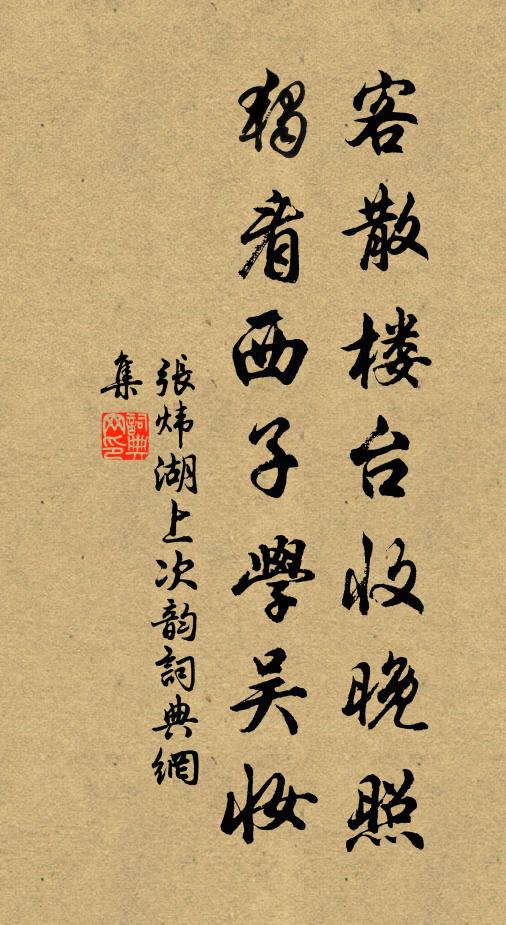 客散楼台收晚照
独看西子學吴妆
張炜湖上次韵詞典網
集
詞典
网印